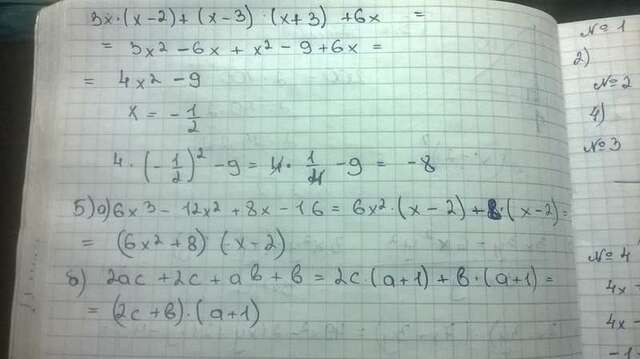 3x·(x-2)+(x-3)·(x+3)+6x =
= 3x² - 6x + x² - 9 + 6x =
= 4x² - 9
x = -1/2
4·(-1/2)² - 9 = 4·1/4 - 9 = -8
5) а) 6x³ - 12x² + 8x - 16 = 6x²·(x-2)+8·(x-2)=
= (6x²+8)(x-2)
б) 2ac + 2c + ab + b = 2c·(a+1)+b·(a+1)=
= (2c+b)·(a+1)
№1
2)
№2
4)
№3
№4
4x
4x -